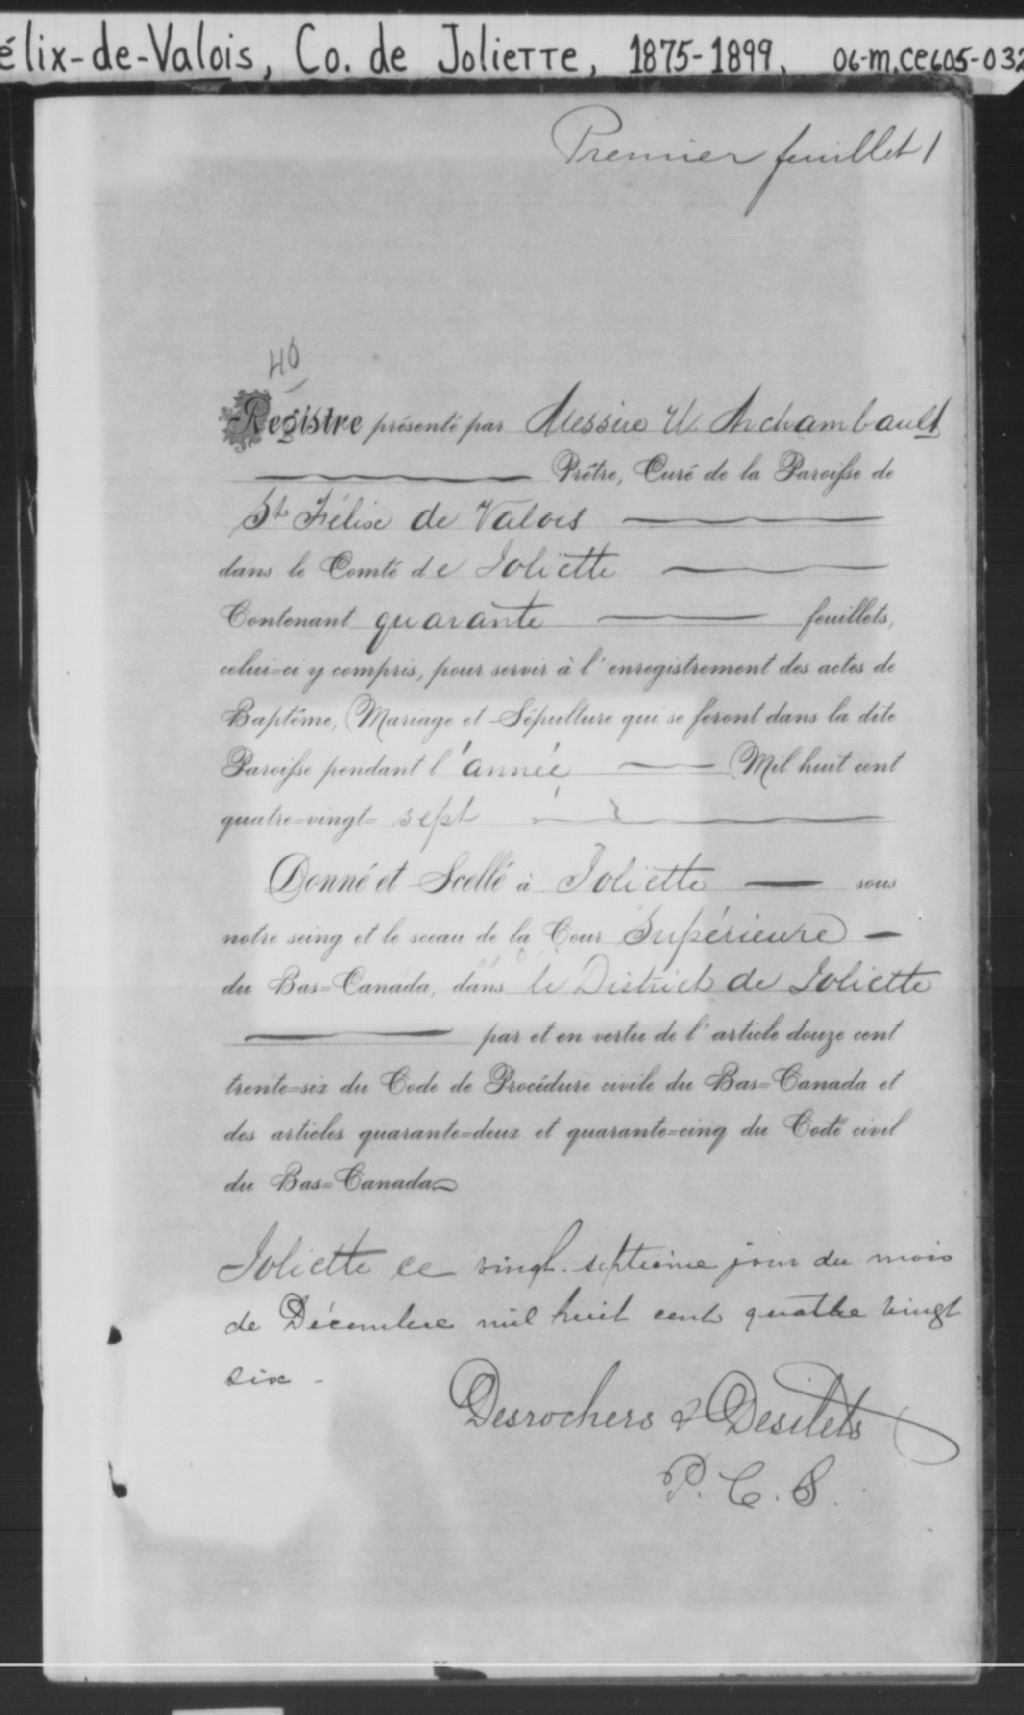 élix-de-Valois, Co. de Joliette, 1875-1899. 06-M.CE605-032
Premier feuillet 1
40
Registre présenté par Messire U. Archambault
Prêtre, Curé de la Paroisse de
St Félix de Valois
dans le Comté de Joliette
Contenant quarante feuillets,
celui-ci y compris, pour servir à l'enregistrement des actes de
Baptême, Mariage et Sépulture qui se feront dans la dite
Paroisse pendant l'année Mil huit cent
quatre-vingt-sept
Donné et Scellé à Joliette sous
notre seing et le sceau de la Cour Supérieure
du Bas-Canada, dans le District de Joliette
par et en vertu de l'article douze cent
trente-six du Code de Procédure civile du Bas-Canada et
des articles quarante-deux et quarante-cinq du Code civil
du Bas-Canada
Joliette ce vingt-septième jour du mois
de Décembre mil huit cent quatre vingt
six -
Desrochers & Desilets
P. C. S.